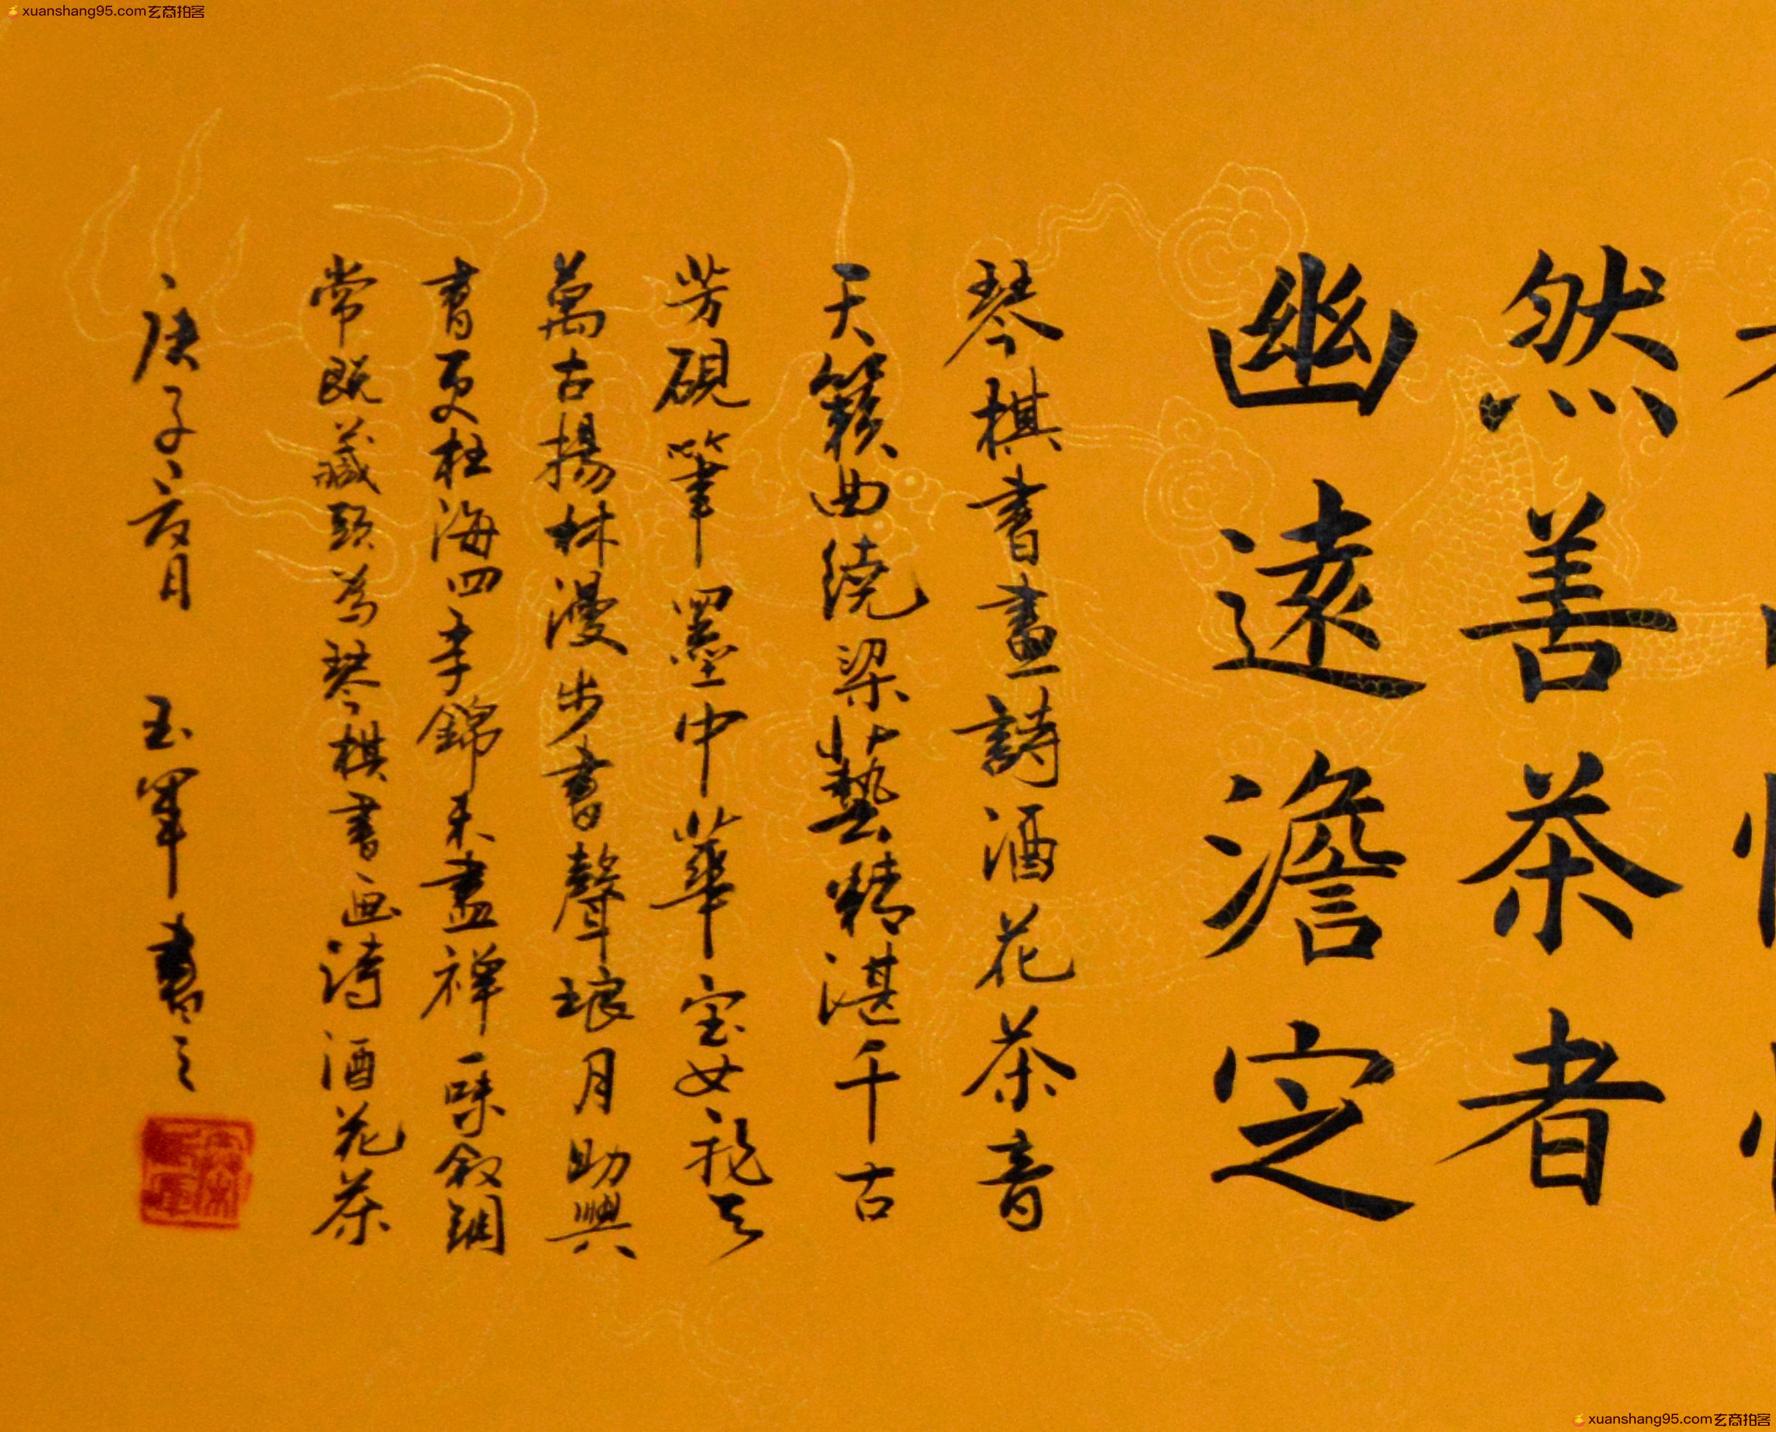 xuanshang95.com玄商拍客
然善茶者
幽遠澹定
琴棋書畫詩酒花茶音
天籟曲繞梁藝精湛千古
芳硯筆墨中華室女
萬古揚林漫步書聲琅月助興
書更杜海四季錦未盡禪一味叙調
常既藏頭为琴棋書画诗酒花茶
庚子夏月 玉軍書之
xuanshang95.com玄商拍客